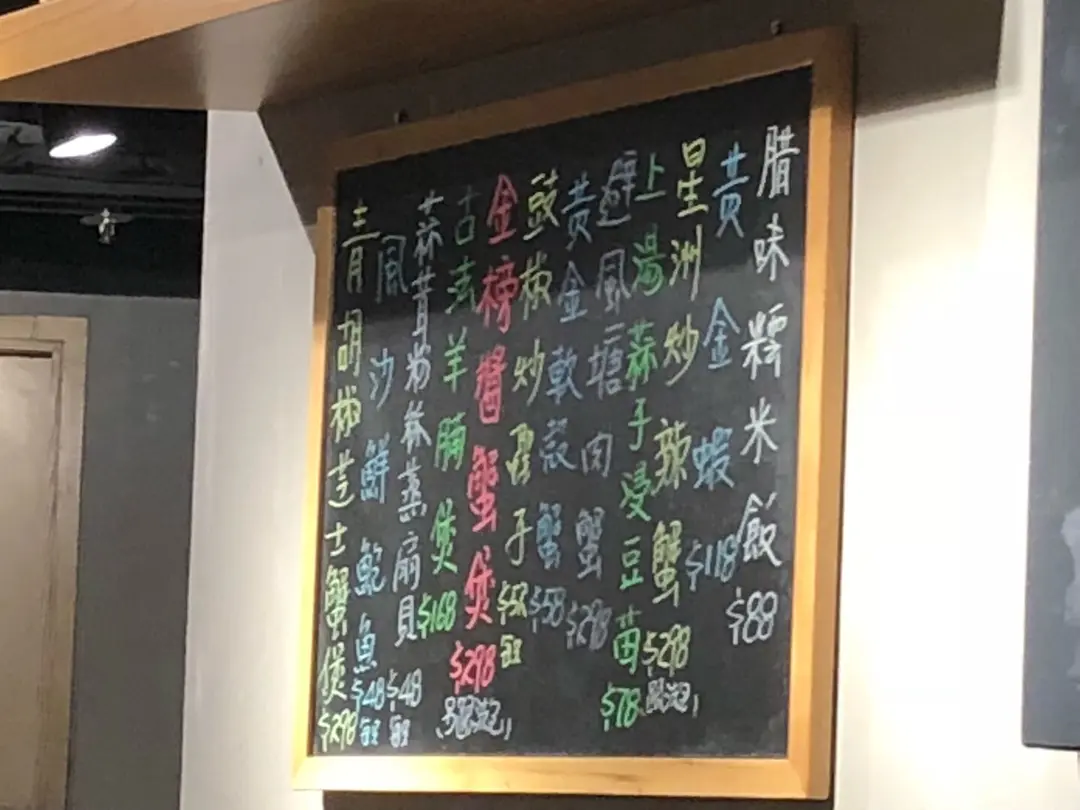 腊味糯米飯 $88
黃金蝦 $118
星洲炒辣蟹 $298
上湯蒜子浸豆苗 $78
避風塘肉蟹 $298
黃金軟殼蟹 $58
豉椒炒聖子
金榜醬蟹煲 $298
古法羊腩煲 $168
蒜茸粉絲蒸扇貝 $48
風沙鮮鮑魚 $48
青胡椒芝士蟹煲 $298